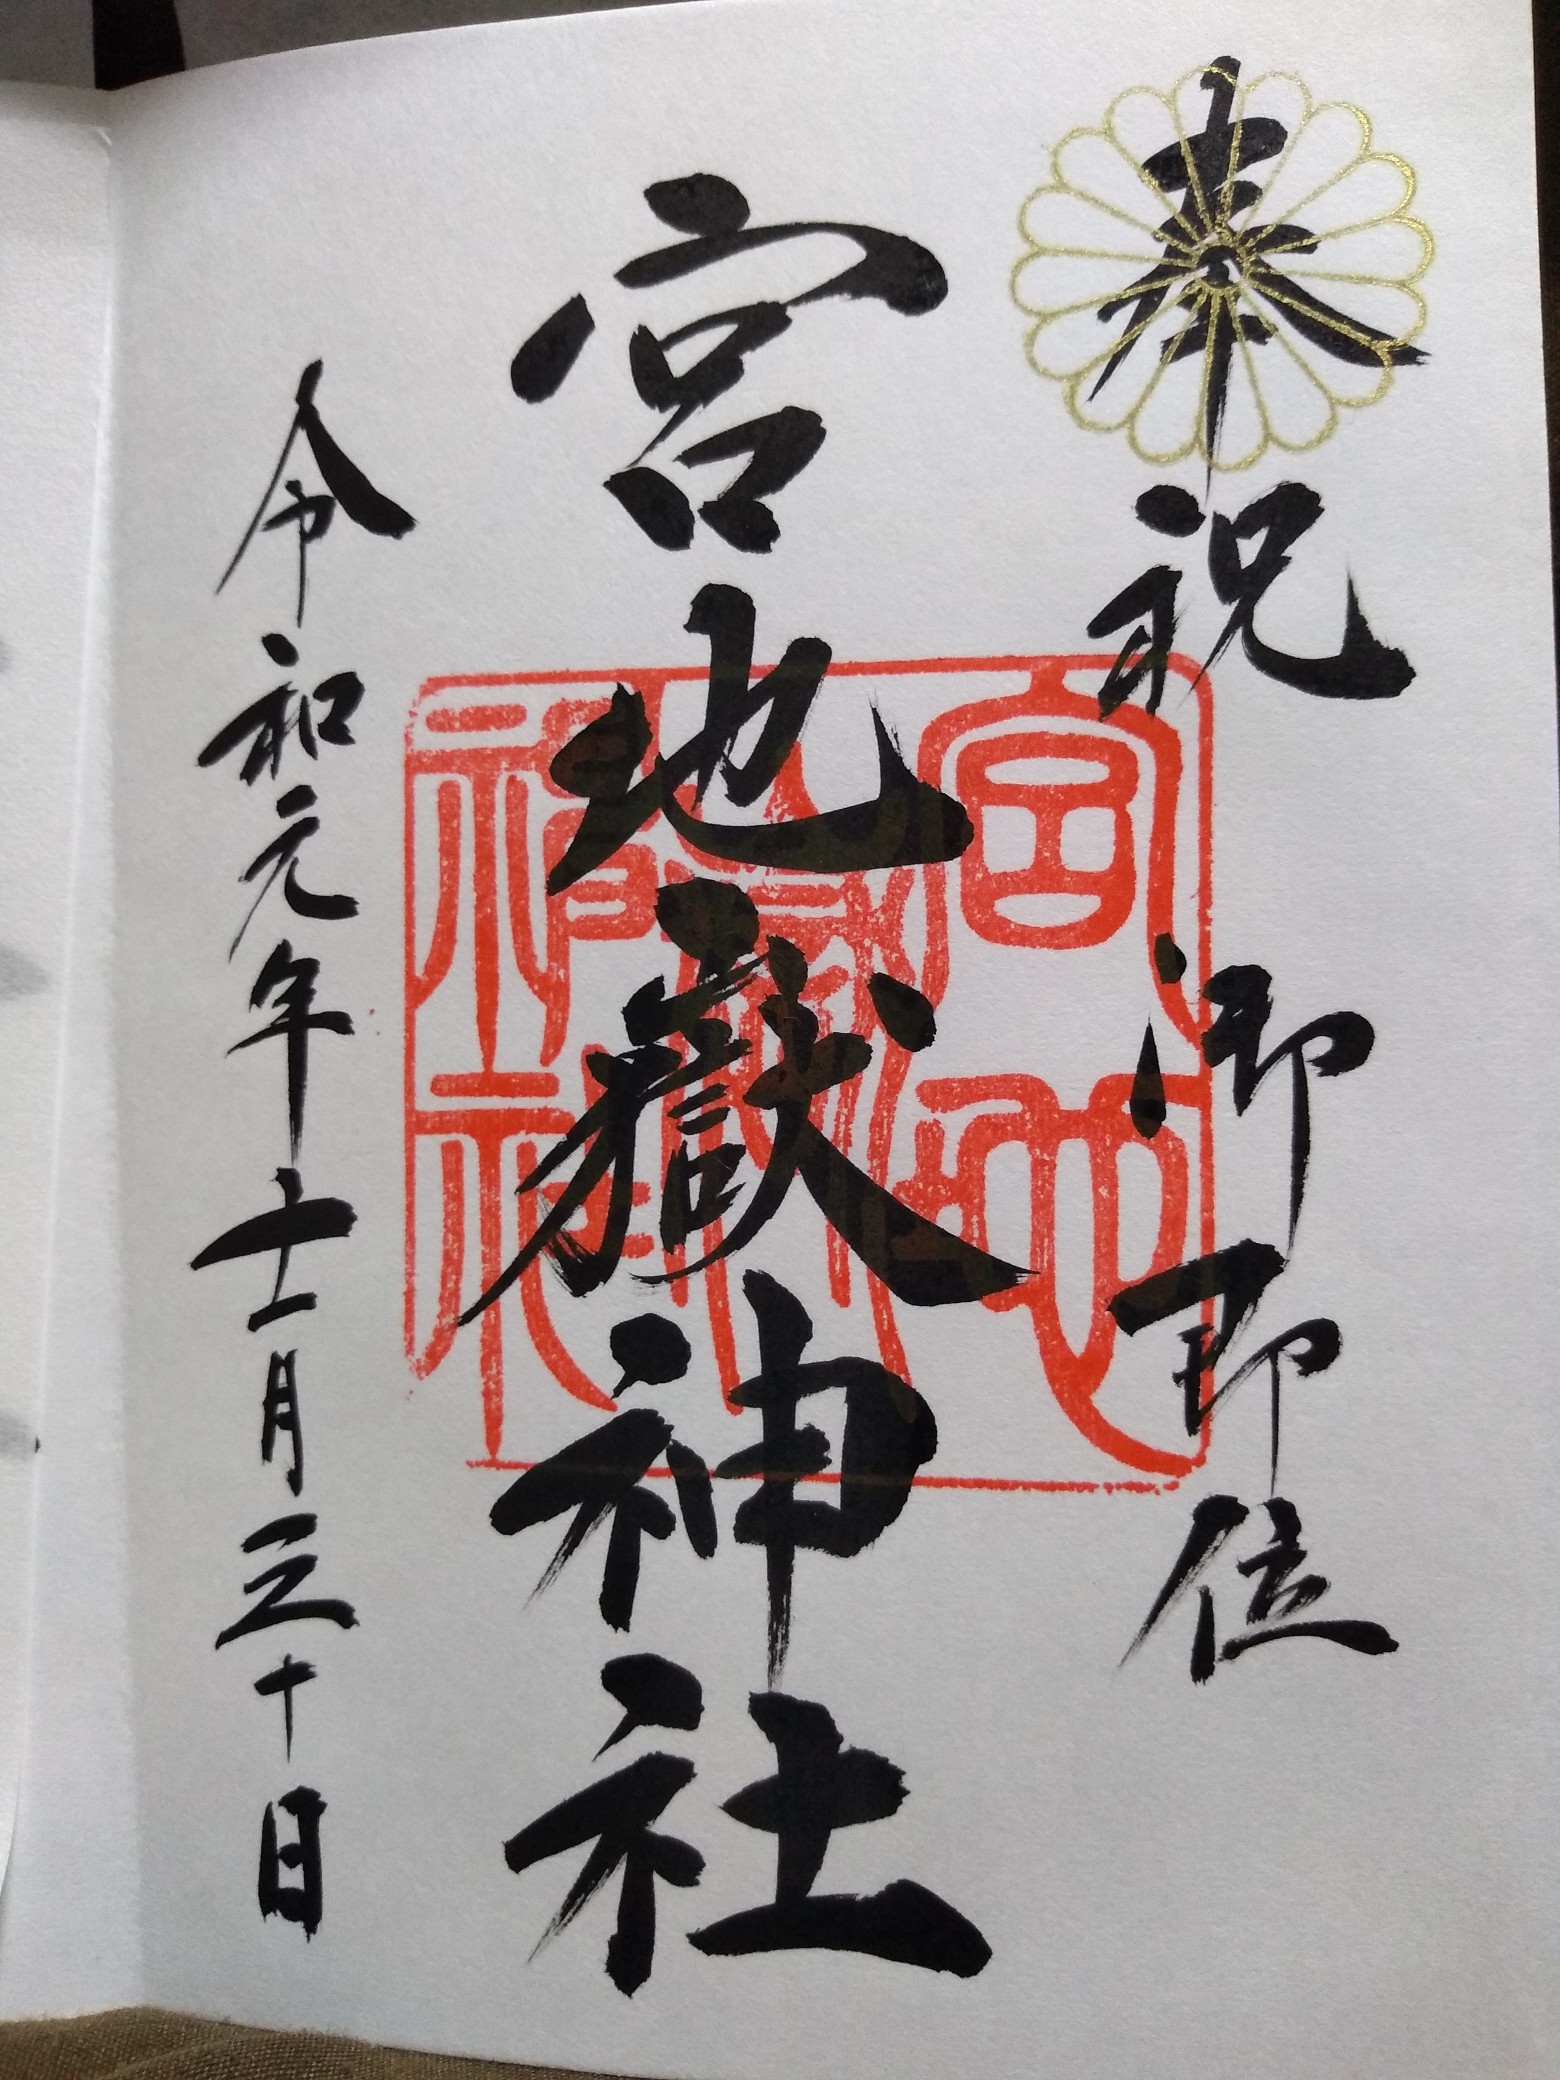 奉祝 御即位
宮地嶽神社
令和元年十一月三十日
宮地
嶽
神社